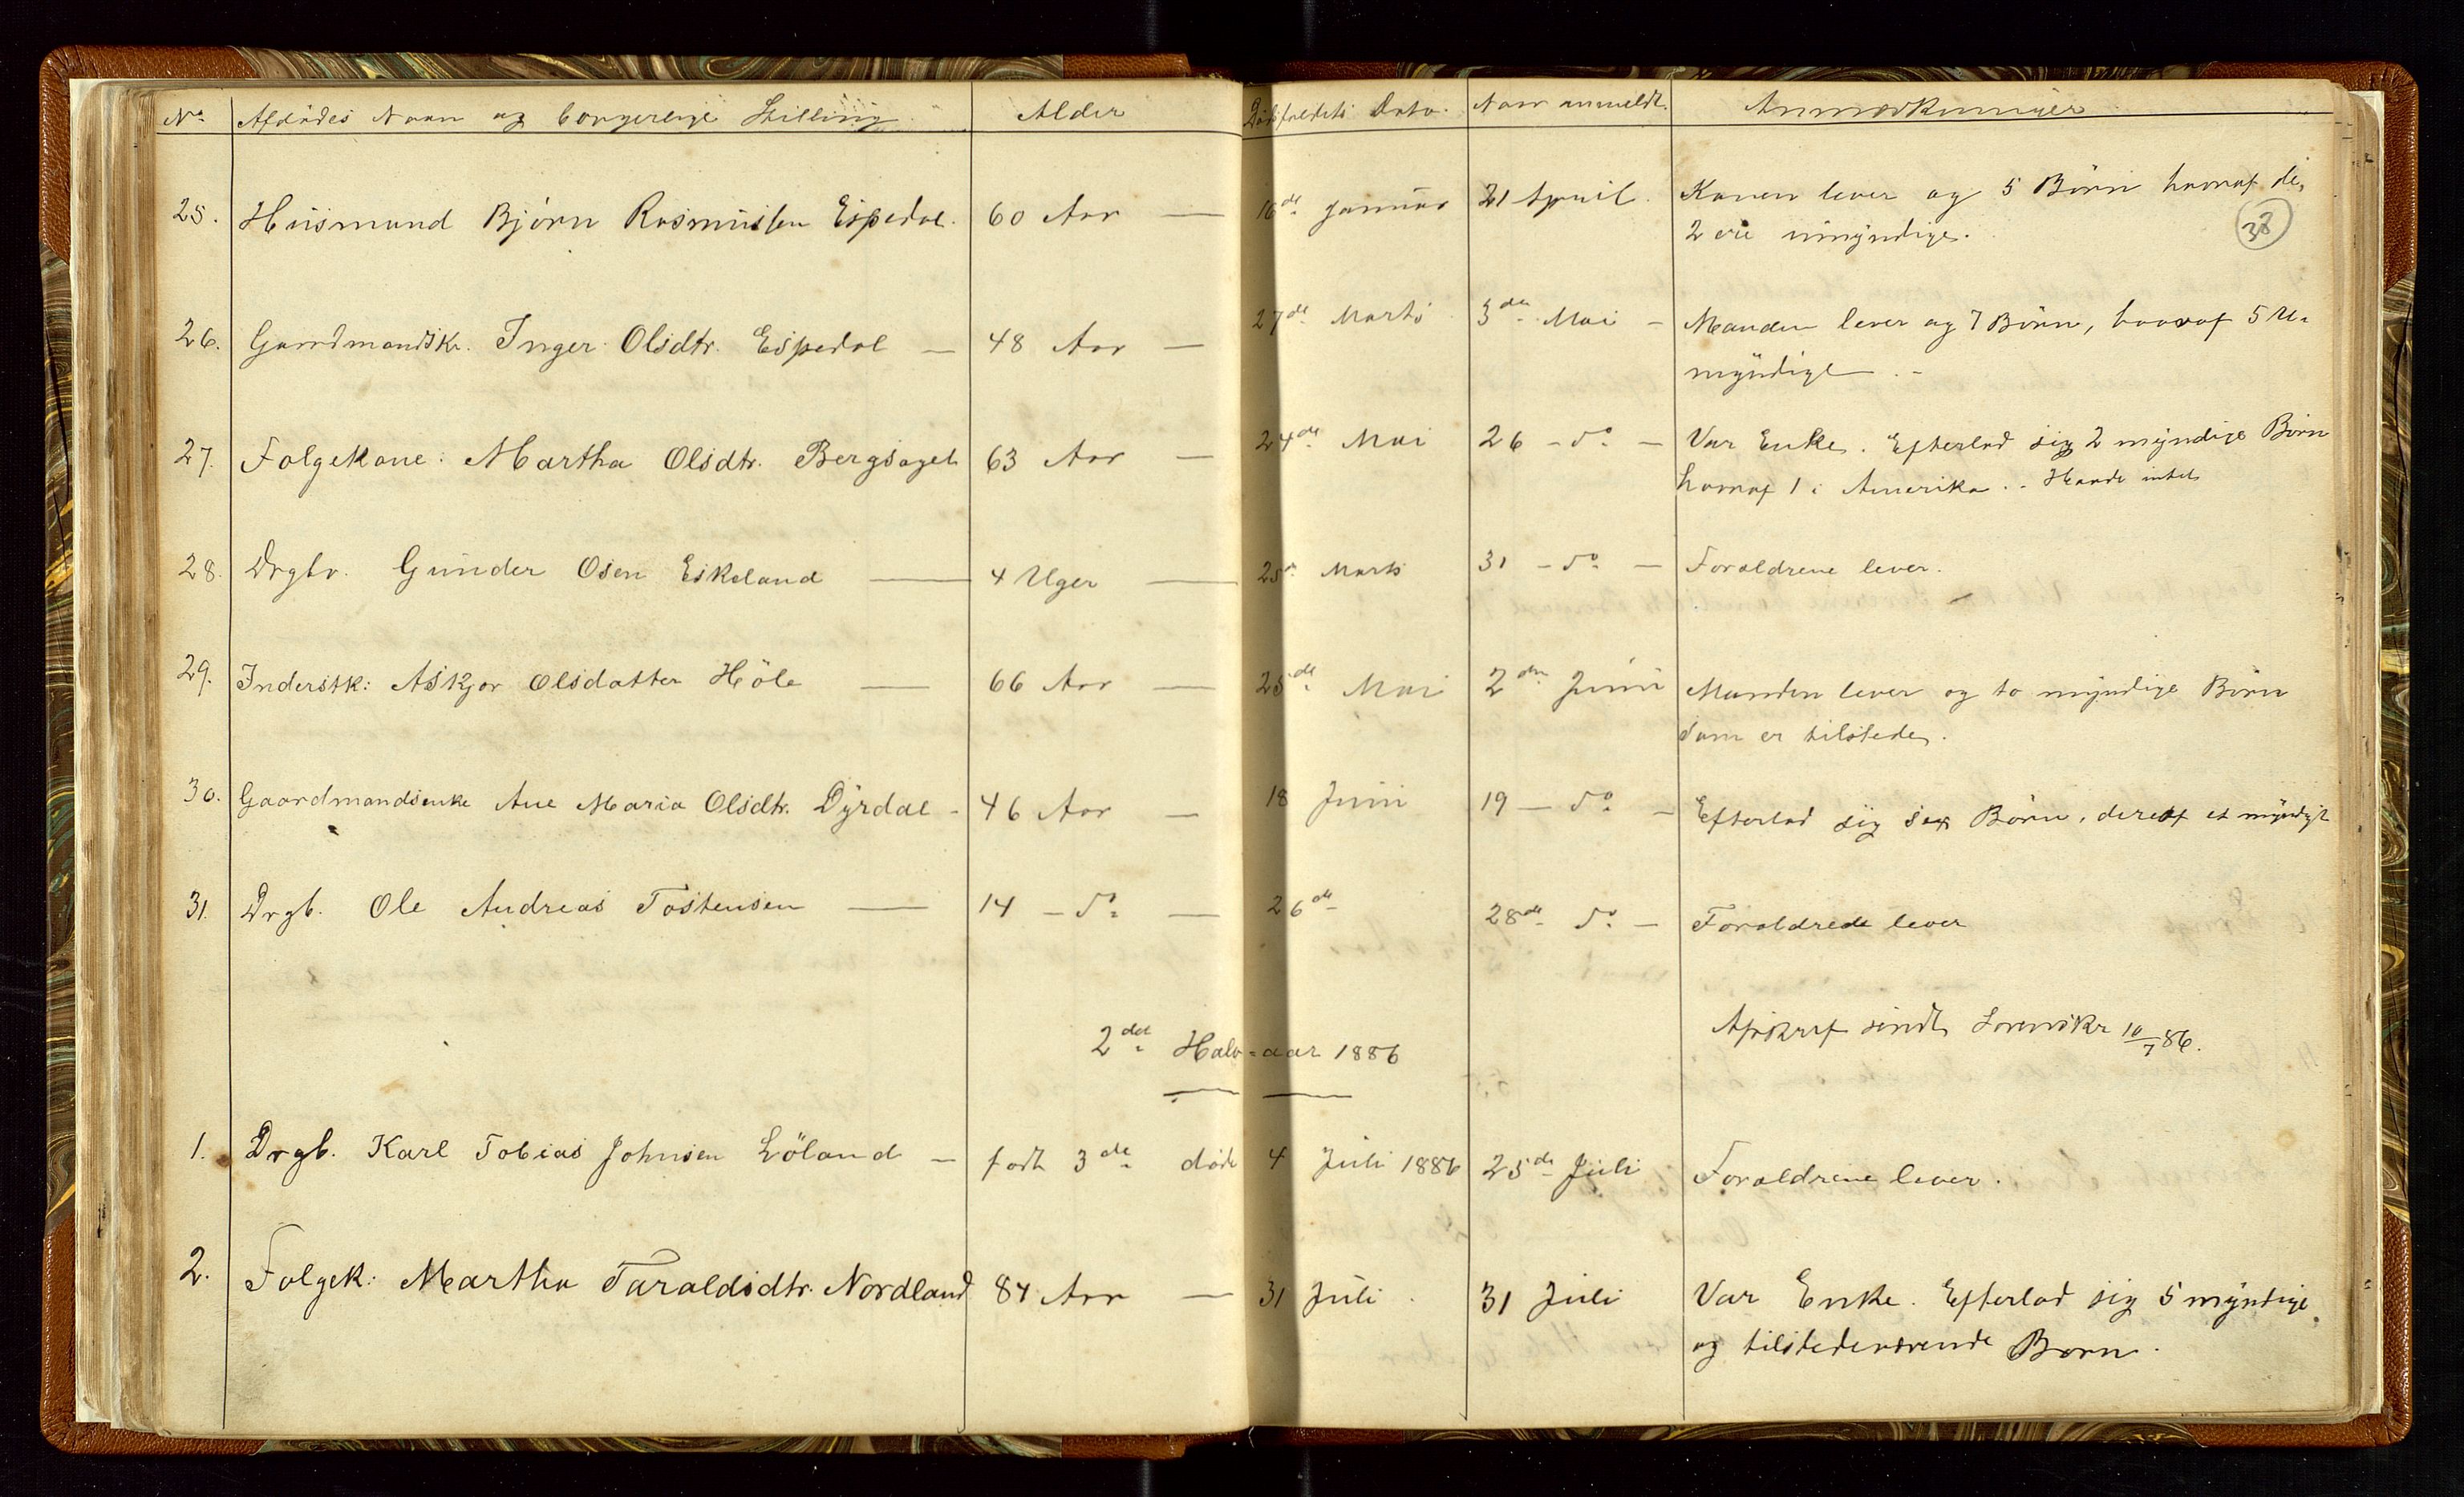 No. Afdødes Navn og borgerlige Stilling. Alder Dødsfaldets Dato. Naar anmeldt. Anmærkninger
25. Husmand Bjørn Rasmussen Espedal. 60 Aar — 16de Januar 21 April. Konen lever og 5 Børn hvoraf de,
2 ere umyndige.
38
26. Gaardmandsk. Inger Olsdtr. Espedal — 48 Aar — 27de Marts 3die Mai — Manden lever og 7 Børn, hvoraf 5 U=
myndige. -
27. Folgekone: Martha Olsdtr. Bergsagel 63 Aar — 24de Mai 26 - do - Var Enke. Efterlod sig 2 myndige Børn
hvoraf 1 i Amerika. - Havde intet
28. Drgbr. Gunder Osen Eskeland — 4 Uger — 25de Marts 31 - do - Foraldrene lever.
29. Inderstk: Askjer Olsdatter Høle — 66 Aar — 25de Mai 2den Juni Manden lever og to myndige Børn
som er tilstede.
30. Gaardmandsenke Ane Maria Olsdtr. Dyrdal - 46 Aar — 18 Juni 19 - do - Efterlod sig sex Børn, deraf et myndigt
31. Drgb. Ole Andreas Tostensen — 14 - do — 26de 28de do - Foraldrede lever
Afskrift sendt Sorenskr 10/7 86.
2det Halv=aar 1886
1. Drgb. Karl Tobias Johnsen Løland — født 3de døde 4 Juli 1886 25de Juli Foraldrene lever.
2. Folgek: Martha Taraldsdtr. Nordland 84 Aar — 31 Juli. 31 Juli Var Enke. Efterlod sig 5 myndige
og tilstedeværende Børn.